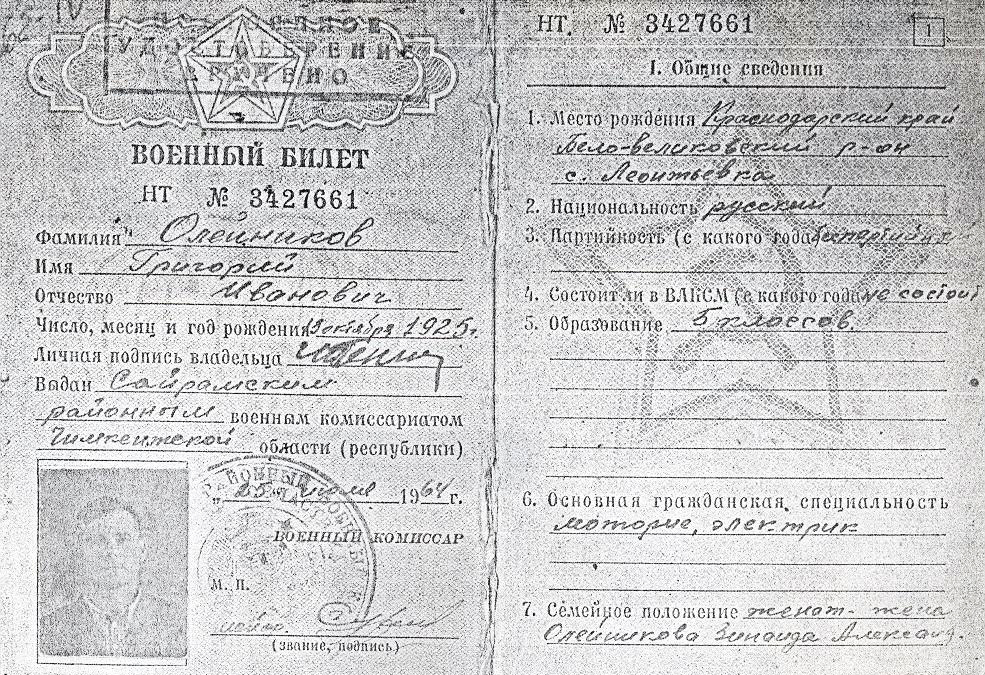 УДОСТОВЕРЕНИЕ
ВОЕННЫЙ БИЛЕТ
НТ № 3427661
Фамилия Олейников
Имя Григорий
Отчество Иванович
Число, месяц и год рождения октября 1925г.
Личная подпись владельца
Выдан Сайрамским
районным военным комиссариатом
Чимкентской области (республики)
„25" июля 1964 г.
ВОЕННЫЙ КОМИССАР
М. П.
(звание, подпись)
НТ № 3427661
1
I. Общие сведения
1. Место рождения Краснодарский край
Бело-великовский р-он
с. Леонтьевка
2. Национальность русский
3. Партийность (с какого года) беспартийный
4. Состоит ли в ВЛКСМ (с какого года) не состоит
5. Образование 5 классов.
6. Основная гражданская специальность
моторис, электрик
7. Семейное положение женат - жена
Олейникова Зинаида Александ.